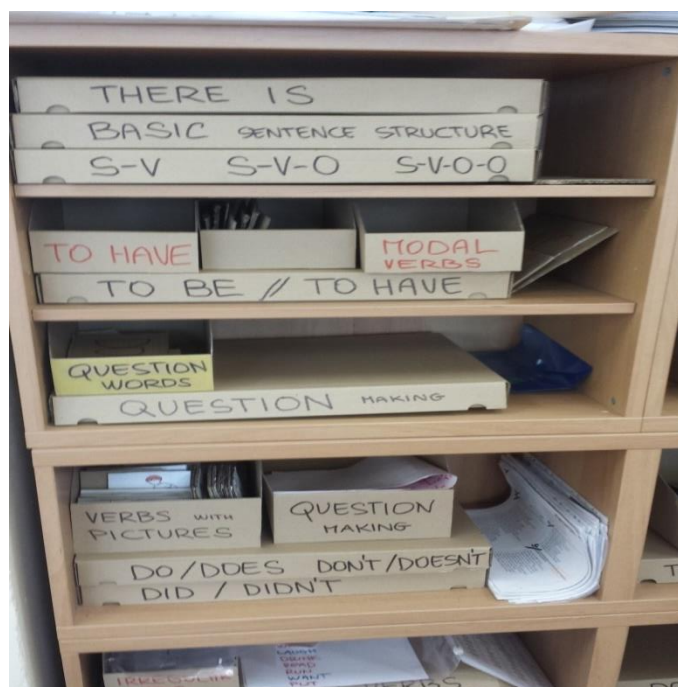 THERE IS
BASIC SENTENCE STRUCTURE
S-V S-V-O S-V-O-O
TO HAVE
MODAL
VERBS
TO BE // TO HAVE
QUESTION
WORDS
QUESTION MAKING
VERBS WITH
PICTURES
QUESTION
MAKING
DO/DOES DON'T/DOESN'T
DID / DIDN'T
LAUGH
DRINK
READ
RUN
WANT
PUT
IRREGULAR
VERBS